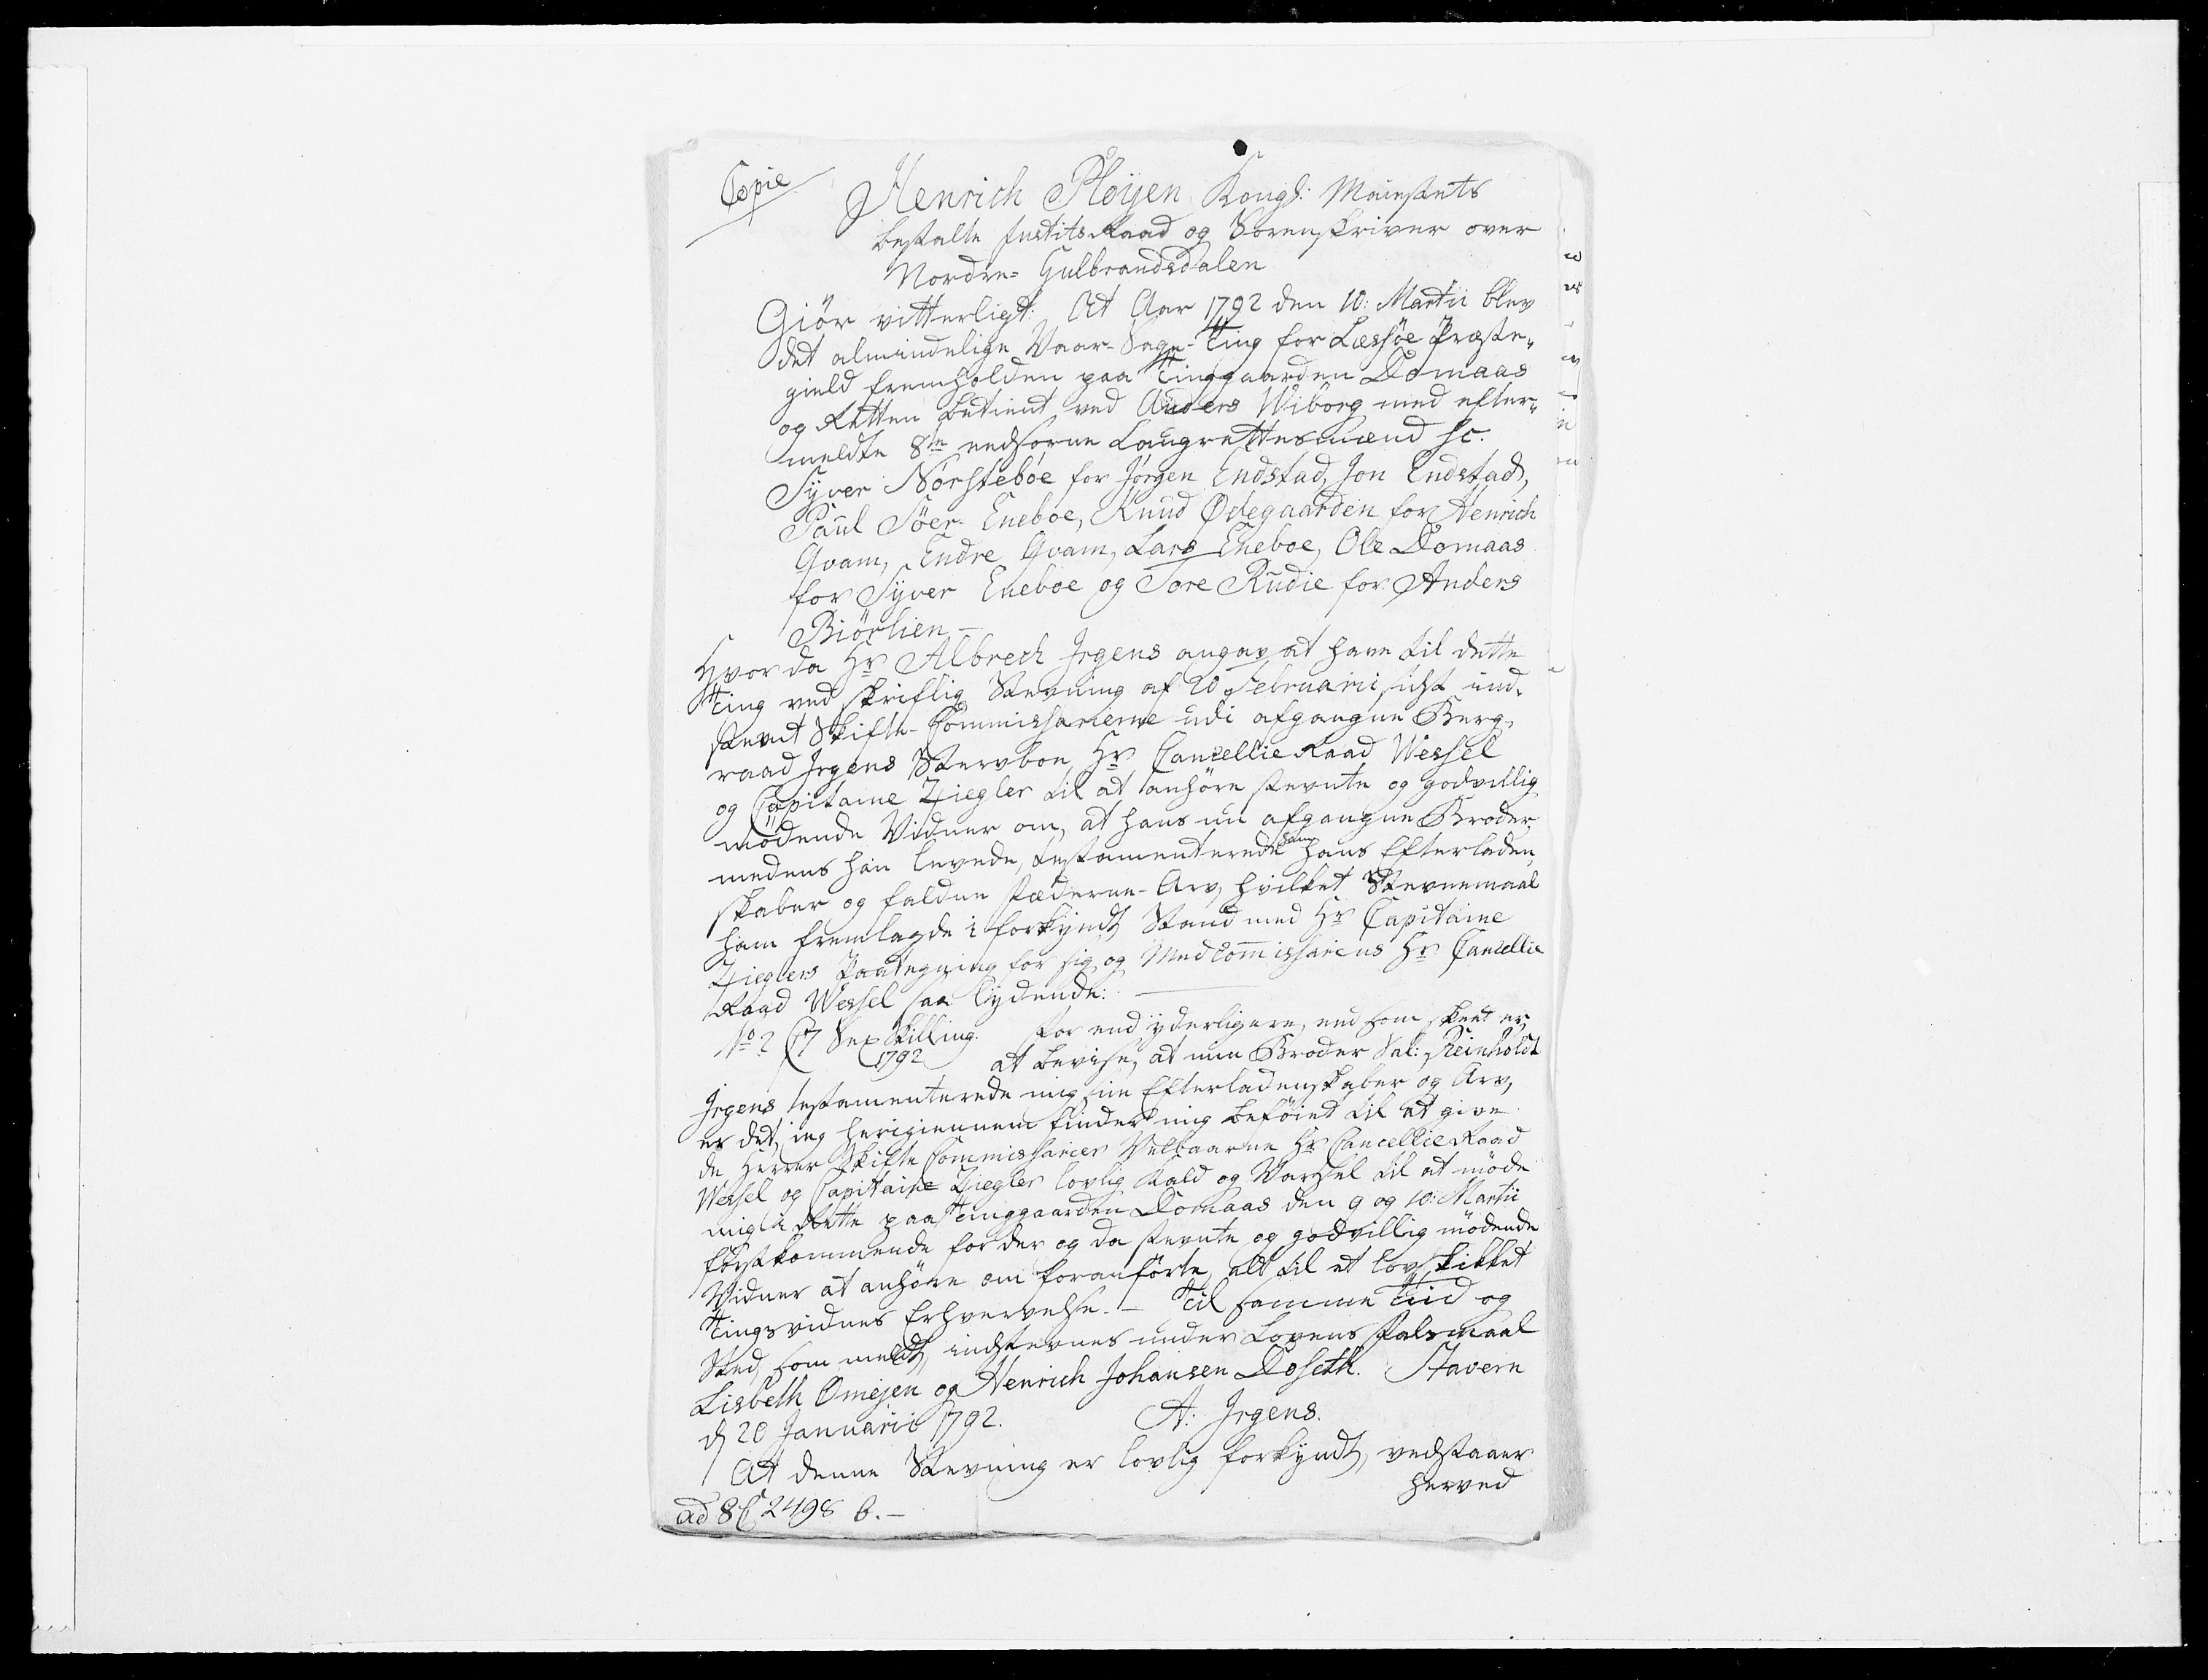 Copie
Henrich Pløyen Kongl: Maiestets
bestalte JustitsRaad og Sorenskriver over
Nordre- Gulbrandsdalen
Giør vitterligt: At Aar 1792 den 10: Martii blev
det almindelige Vaar-Sage-Ting for Lessøe Præste-
gield fremholden paa Tinggaarden Domaas
og Retten betient ved Anders Wiborg med efter-
meldte 8te eedsorne Laugrettesmænd sc.
Syver Nørstebøe for Jørgen Endstad, Jon Endstad,
Paul Söer-Eneboe, Knud Ødegaarden for Henrich
Qvam, Endre Qvam, Lars Eneboe, Ole Domaas
for Syver Eneboe og Tore Rudie for Anders
Biörlien —
Hvor da Hr Albrech Irgens angav at have til dette
Ting ved skriftlig Stevning af 20 Februarii sidst ind-
stevnt Skifte-Commissarierne udi afgangne Berg-
raad Irgens Stervboe, Hr CancellieRaad Wessel
og Capitaine Ziegler til at anhöre stevnte og godvillig
mödende Vidner om, at hans nu afgangne Broder,
medens han levede, testamenterede ham hans Efterladen-
skaber og faldne Fæderne-Arv, hvilket Stevnemaal
ham fremlagde i forkyndt Stand med Hr Capitaine
Zieglers Paategning for sig og Medcommissarius Hr Cancellie
Raad Wessel saa lydende: —
No 2 C7 Sex Skilling. For end yderligere, end som skeet er,
1792 at bevise, at min Broder Sal: Reinholdt
Irgens testamenterede mig sine Efterladenskaber og Arv,
er det, ieg herigiennem finder mig beföiet til at give
de Herrer Skifte Commissarier Velbaarne Hr CancellieRaad
Wessel og Capitaine Ziegler lovlig Kald og Varsel til at möde
mig i Rette paa Tinggaarden Domaas den 9 og 10: Martii
förstkommende for der og da stevnte og godvillig mödende
Vidner at anhöre om foranförte, alt til et lovskikket
Tingsvidnes Erhvervelse. — Til samme Tiid og
Sted, som meldt, indstevnes under Lovens Falsmaal
Lisbeth Omejen og Henrich Johansen Doseth. Stavern
d 20 Januarii 1792. A: Irgens.
At denne Stevning er lovlig forkyndt, vedstaaer
herved
ad 8 C 2498 b. —